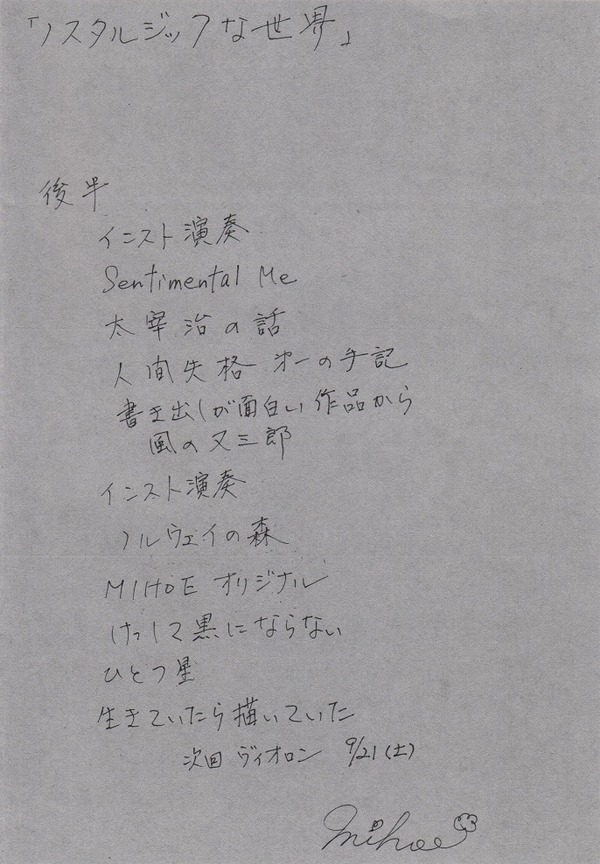 「ノスタルジックな世界」
後半
インスト演奏
Sentimental Me
太宰治の話
人間失格 第一の手記
書き出しが面白い作品から
風の又三郎
インスト演奏
ノルウェイの森
MIHOE オリジナル
けっして黒にならない
ひとつ星
生きていたら描いていた
次回 ヴィオロン 9/21(土)
mihoe